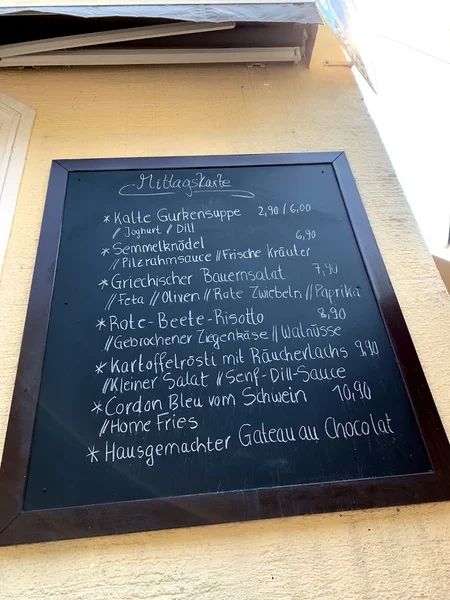 Mittagskarte
* Kalte Gurkensuppe 2,90 / 6,00
// Joghurt // Dill
* Semmelknödel 6,90
// Pilzrahmsauce // Frische Kräuter
* Griechischer Bauernsalat 7,90
// Feta // Oliven // Rote Zwiebeln // Paprika
* Rote-Beete-Risotto 8,90
// Gebrochener Ziegenkäse // Walnüsse
* Kartoffelrösti mit Räucherlachs 9,90
// Kleiner Salat // Senf-Dill-Sauce
* Cordon Bleu vom Schwein 10,90
// Home Fries
* Hausgemachter Gateau au Chocolat